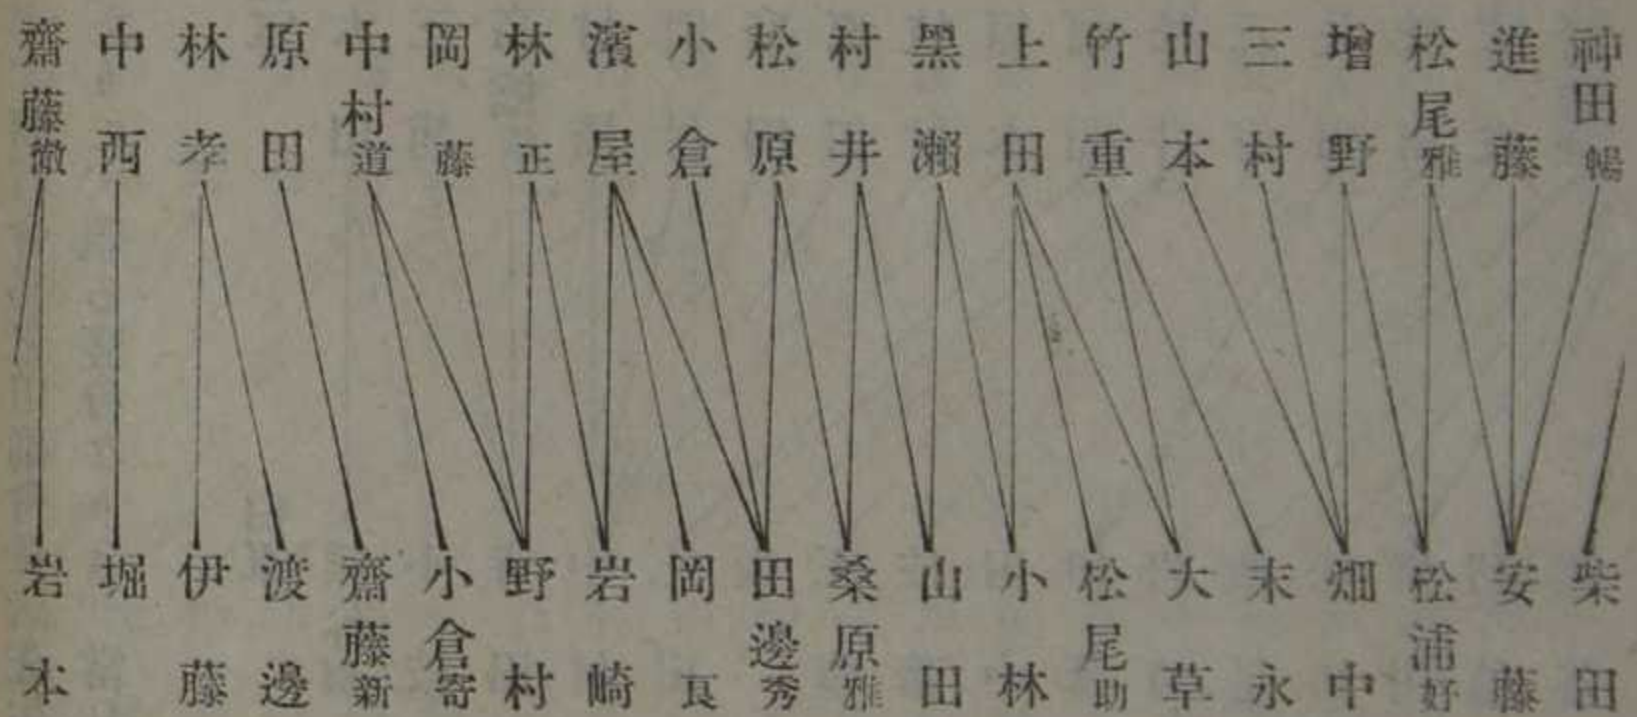 神田暢
進藤
松尾雅
增野
三村
山本
竹重
上田
黑瀨
村井
松原
小倉
濱屋
林正
岡藤
中村道
原田
林孝
中西
齋藤徹
柴田
安藤
松浦好
畑中
末永
大草
松尾助
小林
山田
桑原雅
田邊秀
岡良
岩崎
野村
小倉寄
齋藤新
渡邊
伊藤
堀
岩本